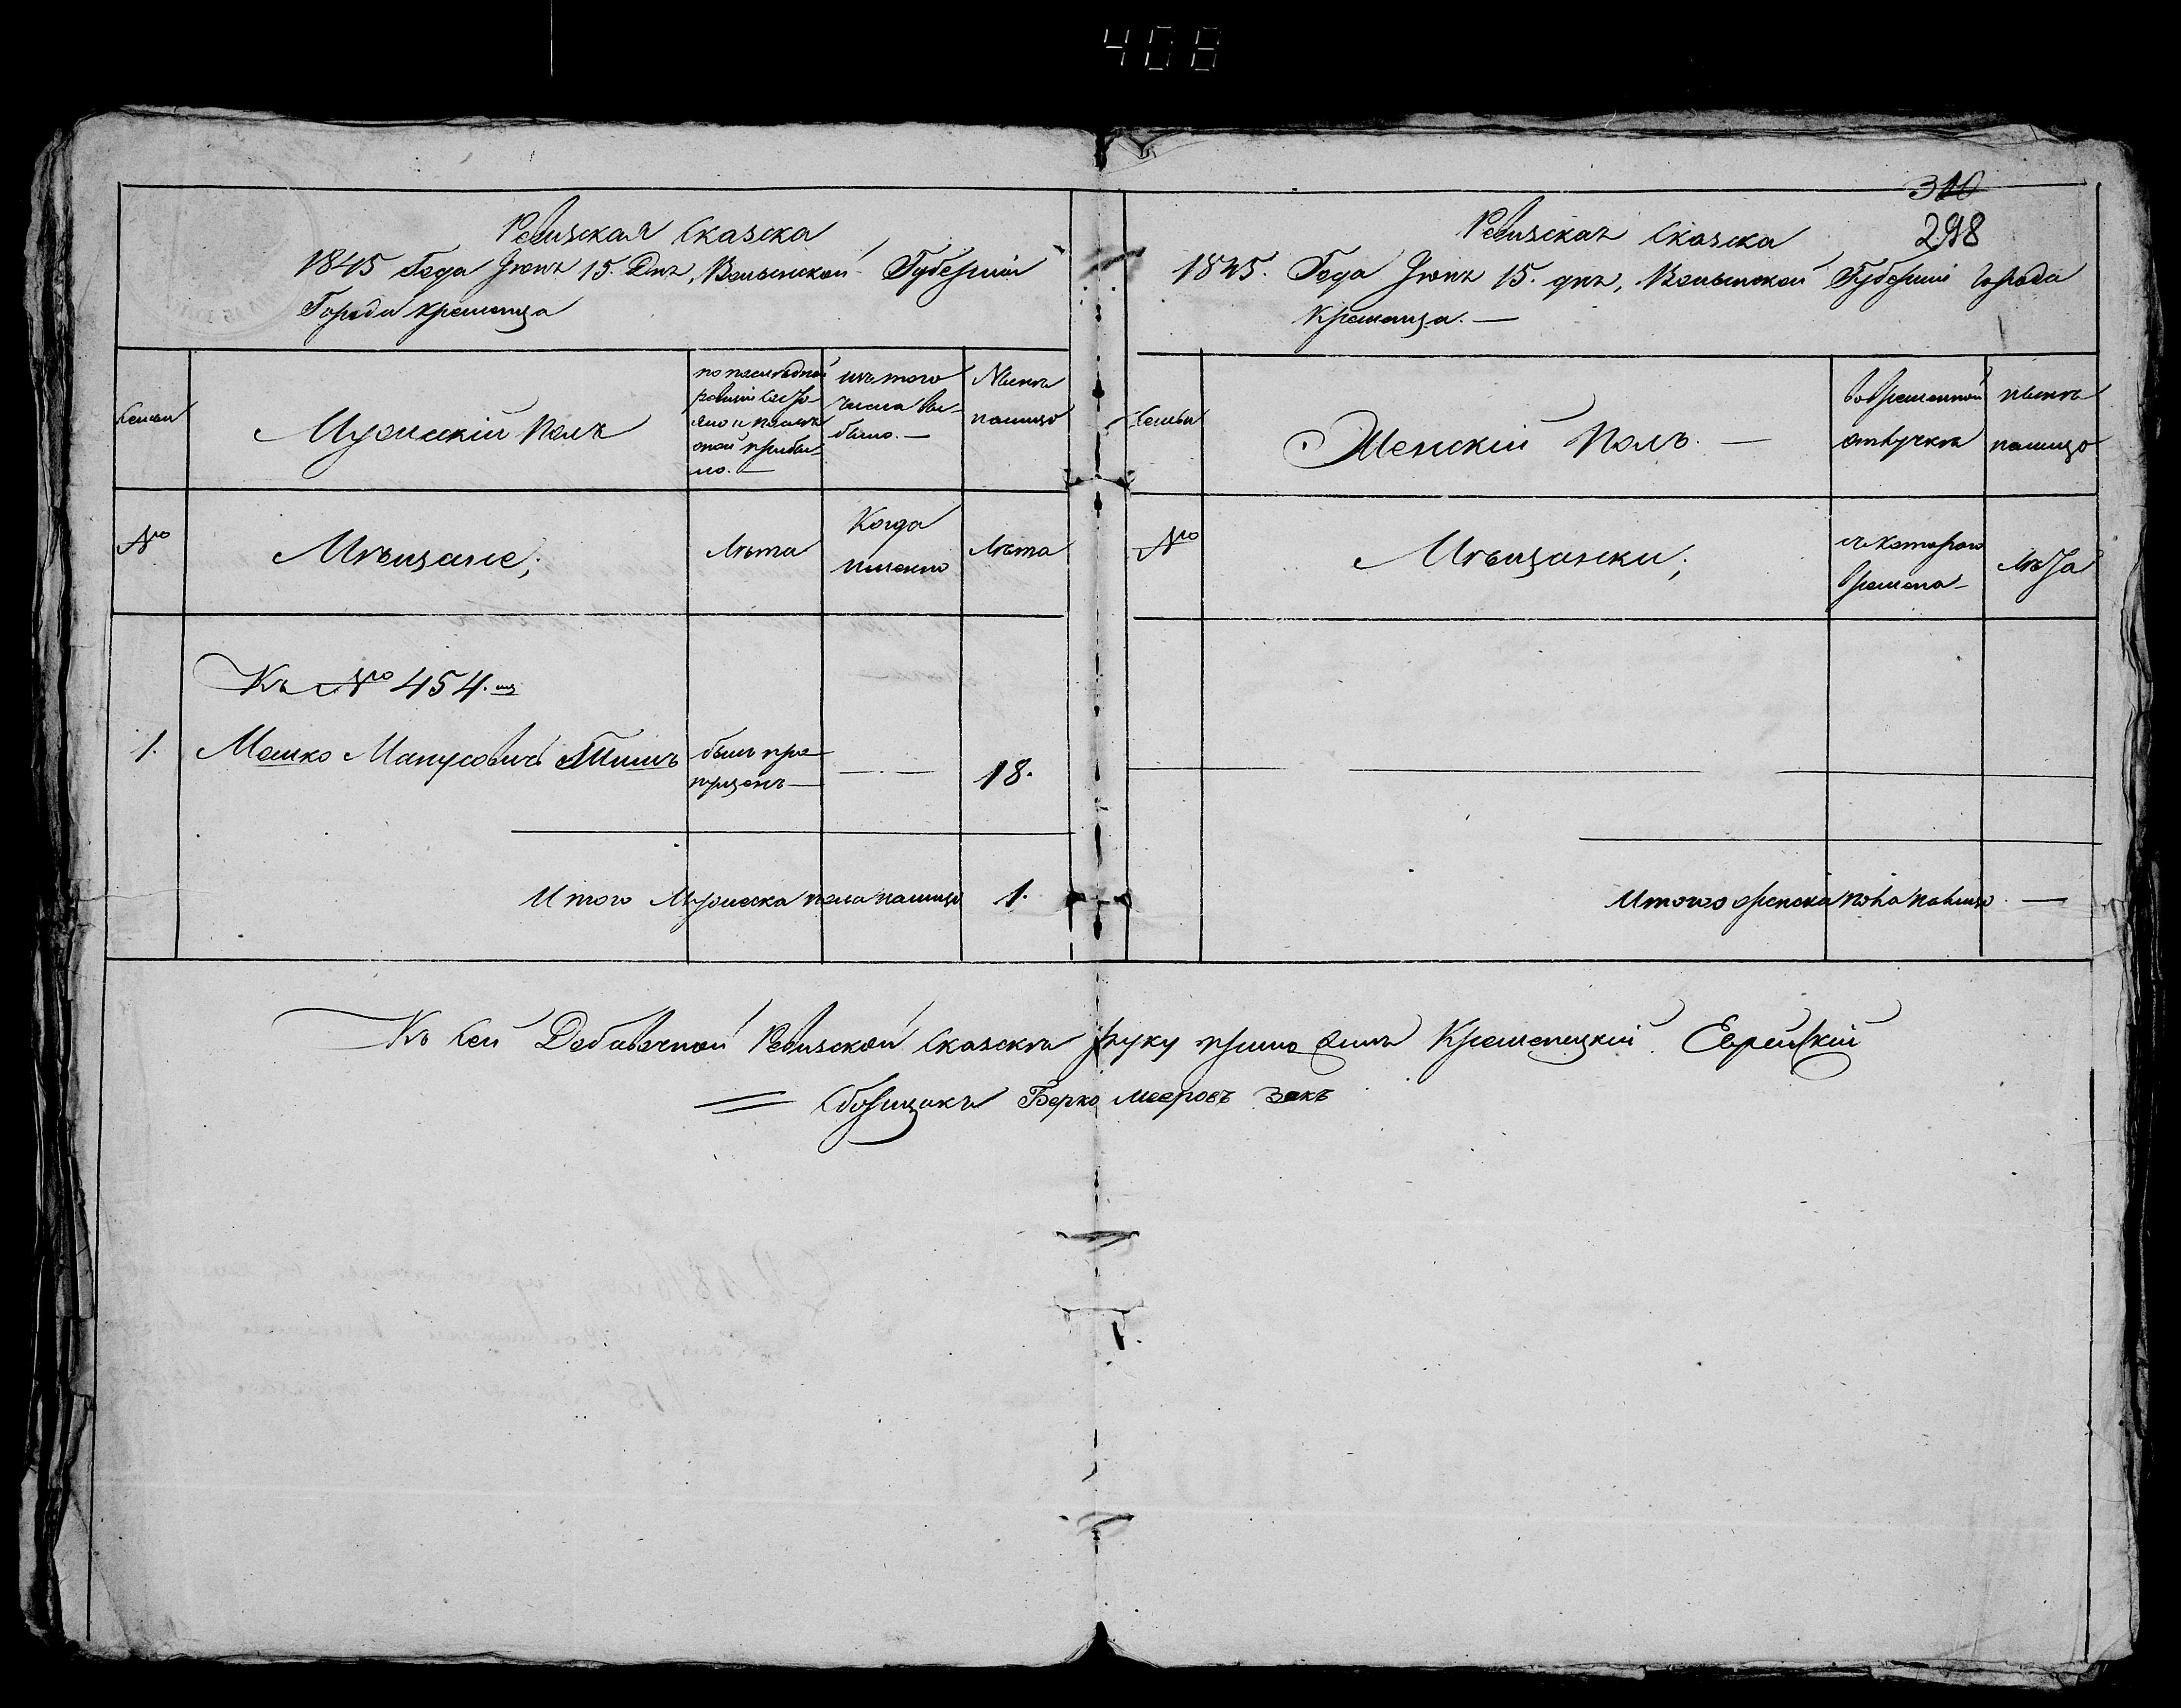 408
310
298
Ревизская Сказка
1845 Года Июня 15. Дня, Волынской Губернии
Города Кременца
Семьи
Мужеский Полъ
по последней
ревизіи состо-
яло и после
оной прибы-
ло. —
изъ того
числа вы-
было. —
Ныне
налицо
№
Мѣщане;
Лѣта
Когда
именно
Лѣта
Къ № 454.
1.
Мошко Манусовичъ Тишъ
былъ про-
пущенъ —
— . —
18.
Итого Мужеска пола налицо 1.
Ревизская Сказка
1845. Года Июня 15. дня, Волынской Губерніи города
Кременца. —
Семьи
Женскій Полъ. —
во временной
отлучке
ныне
налицо
№
Мѣщанки;
съ котораго
времени
Лѣта
Итого женска пола налицо. —
Къ сей Добавочной Ревизской сказке руку приложилъ Кременецкій Еврейскій
Сборщикъ Берко Мееровъ Закъ